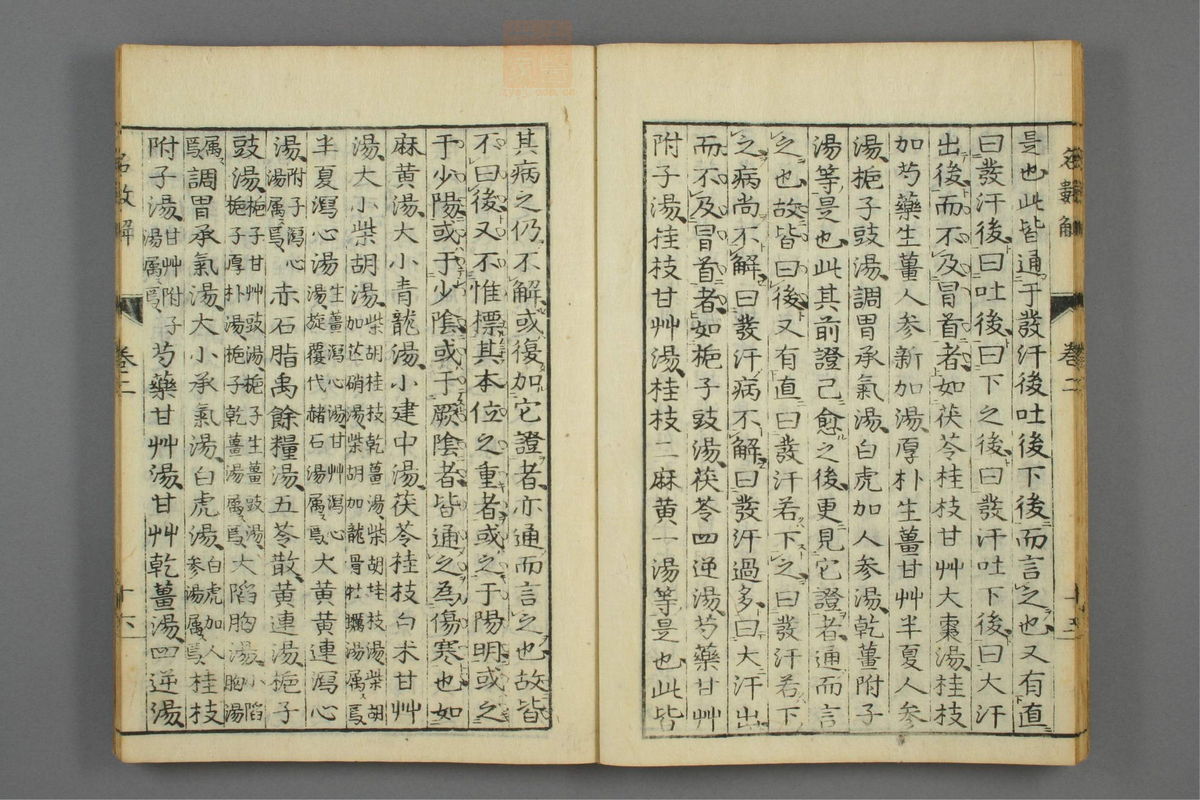 是也此皆通于發汗後吐後下後而言之也又有直
曰發汗後曰吐後曰下之後曰發汗吐下後曰大汗
出後而不及冒首者如茯苓桂枝甘艸大棗湯桂枝
加芍藥生薑人參新加湯厚朴生薑甘艸半夏人參
湯梔子豉湯調胃承氣湯白虎加人參湯乾薑附子
湯等是也此其前證已愈之後更見它證者通而言
之也故皆曰後又有直曰發汗若下之曰發汗若下
之病尚不解曰發汗病不解曰發汗過多曰大汗出
而不及冒首者如梔子豉湯茯苓四逆湯芍藥甘艸
附子湯桂枝甘艸湯桂枝二麻黄一湯等是也此皆
卷二
其病之仍不解或復加它證者亦通而言之也故皆
不曰後又不惟標其本位之重者或之于陽明或之
于少陽或于少陰或于厥陰者皆通之為傷寒也如
麻黄湯大小青龍湯小建中湯茯苓桂枝白朮甘艸
湯大小柴胡湯柴胡桂枝乾薑湯柴胡桂枝湯柴胡
加芒硝湯柴胡加龍骨牡蠣湯屬焉
半夏瀉心湯生薑瀉心湯甘艸瀉心
湯旋覆代赭石湯屬焉大黄黄連瀉心
湯附子瀉心
湯屬焉赤石脂禹餘糧湯五苓散黄連湯梔子
豉湯梔子甘艸豉湯梔子生薑豉湯
梔子厚朴湯梔子乾薑湯屬焉大陷胸湯小陷
胸湯
屬焉調胃承氣湯大小承氣湯白虎湯白虎加人
參湯屬焉桂枝
附子湯甘艸附子
湯屬焉芍藥甘艸湯甘艸乾薑湯四逆湯
名數解
卷二
十六